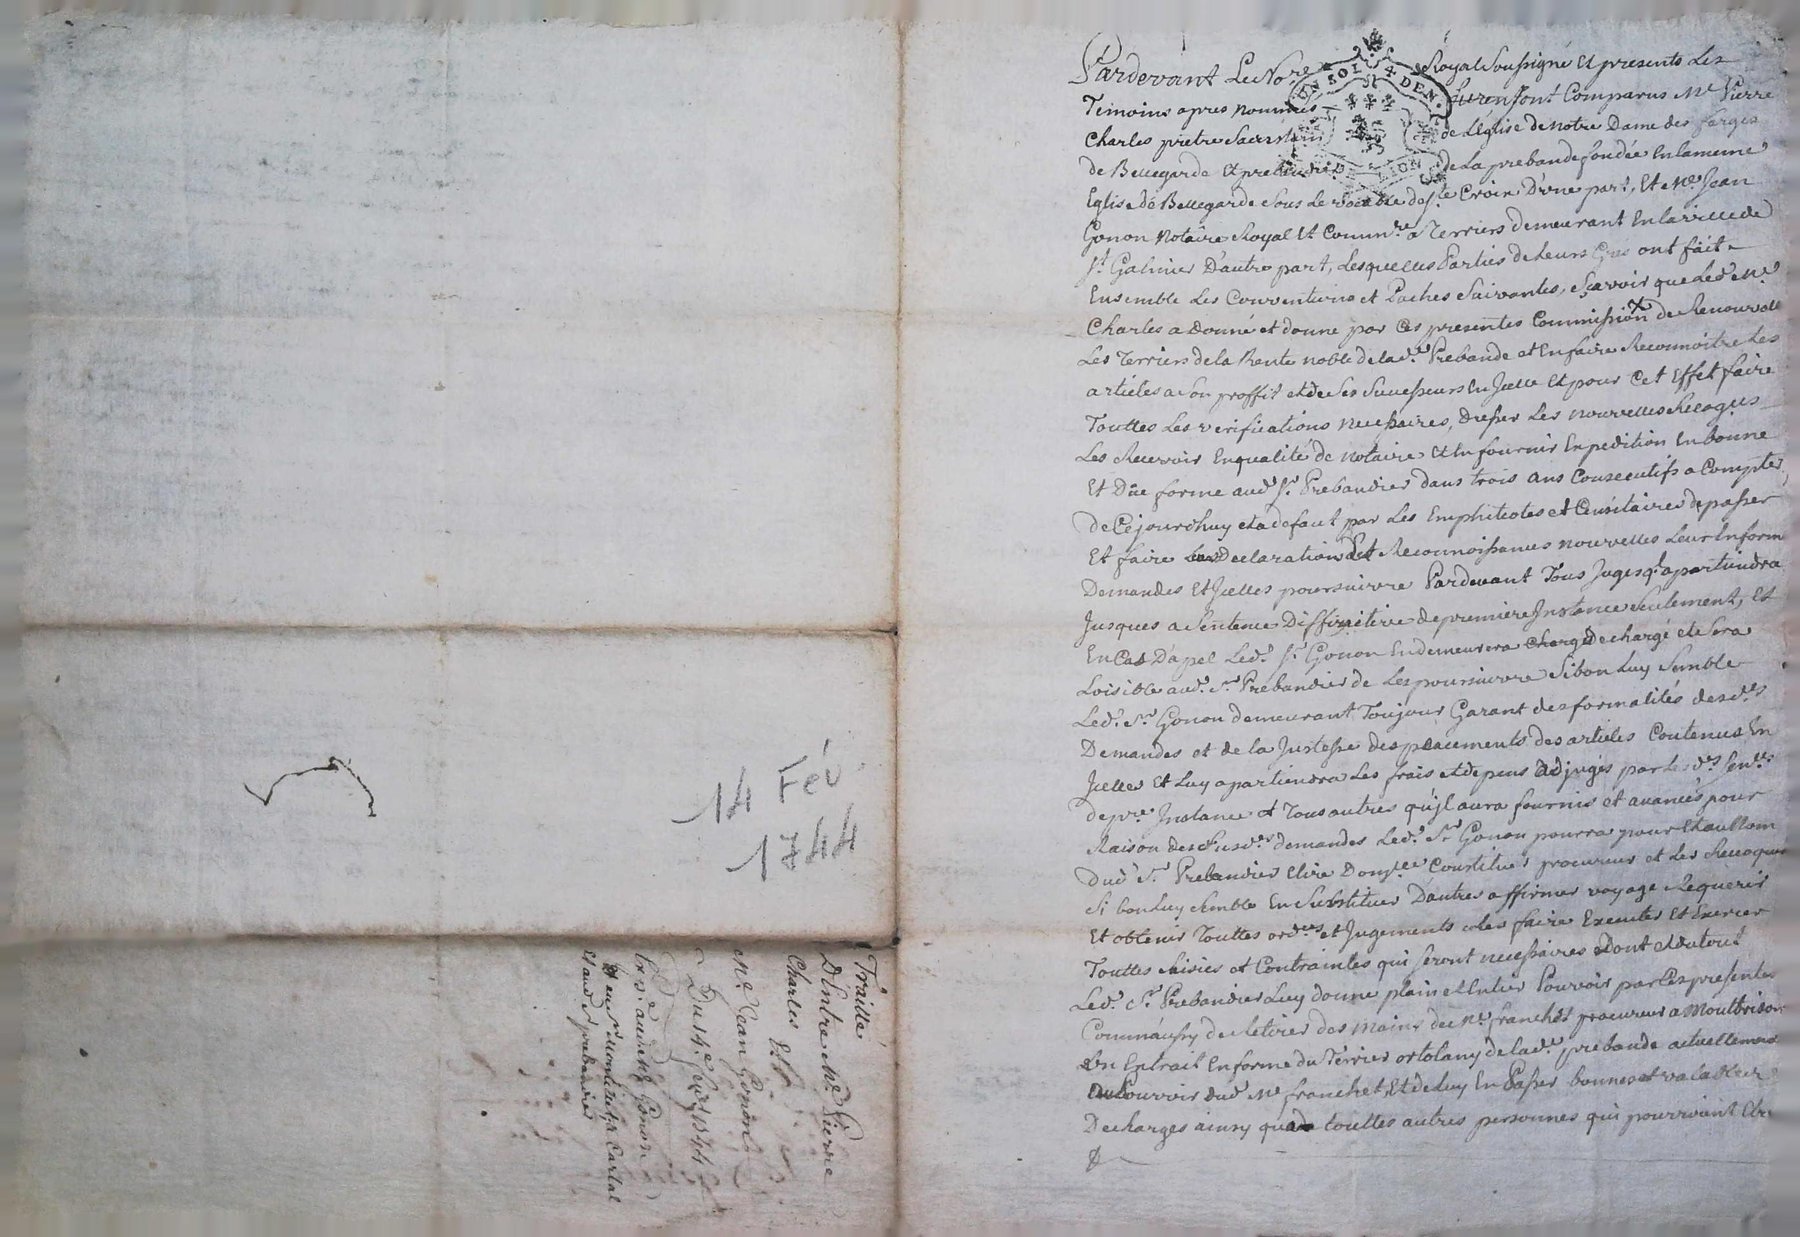 14 Fév
1744
Traitté
D'Entre Me Pierre
Charles Et
Me Jean Gonon
Du 14e fev. 1744
Gonon
Et aud. Sr prebandier
UN SOL 4 DEN.
LION
Pardevant Le Nore Royal Soussigné Et presents Les
Temoins apres nommés furent Comparus Me Pierre
Charles pretre Sacristain de L'Eglise de Notre Dame des farges
de Bellegarde Et prebandier de La prebande fondée En la meme
Eglise de Bellegarde Sous Le vocable de Ste Croix D'une part, Et Me Jean
Gonon Notaire Royal Et Commre a Terriers demeurant En la ville de
St Galmier D'autre part, Lesquelles Parties de Leurs Grés ont fait
Ensemble Les Conventions et Paches Suivantes, Sçavoir que Led. Me
Charles a Donné et donne par Ces presentes Commission de Renouveller
Les Terriers de la Rente noble de lad. Prebande et En faire Reconnoitre Les
articles a Son proffit et de Ses Successeurs En Jcelle Et pour Cet Effet faire
Touttes Les verifications necessaires, Dresser Les nouvelles Recogces
Les Recevoir En qualité de Notaire Et En fournir Expedition En bonne
Et Düe forme aud. Sr Prebandier dans trois ans Consecutifs a Compter
de Cejourdhuy et a defaut par Les Emphiteotes et Censitaires de passer
Et faire Les Declarations Et Reconnoissances nouvelles Leur former
Demandes Et Jcelles poursuivre Pardevant Tous Juges ql apartiendra
Jusques a Sentence Diffinitive de premiere Instance Seulement, Et
En Cas D'apel Led. Sr Gonon En demeurera Dechargé et Sera
Loisible aud. Sr Prebandier de Les poursuivre Si bon Luy Semble
Led. Sr Gonon demeurant Toujours Garant des formalités desd.
Demandes et de la Justesse des placements des articles Contenus En
Jcelles Et Luy apartiendra Les frais et depens Adjugés par Les d. Senes
de pre Instance et Tous autres qu'jl aura fournis et avancés pour
Raison des Susd. demandes Led. Sr Gonon pourra pour Et au Nom
Dud. Sr Prebandier Elire Domlle Constituer procureur et Les Revoquer
Si bon Luy Semble En Substituer D'autres affirmer voyage Requerir
Et obtenir Touttes ordces et Jugements Les faire Executer Et Exercer
Touttes Saisies et Contraintes qui Seront necessaires Dont Et du tout
Led. Sr Prebandier Luy donne plain et Entier Pouvoir par Ces presentes
Comm'aussy de Retirer des Mains de Me franchet procureur a Montbrison
Un Extrait En forme du Terrier ortolany de lad. prebande actuellement
au Pouvoir dud. Me franchet Et de Luy En Passer bonnes et valables
Decharges ainsy qu'a touttes autres personnes qui pourroient Etre